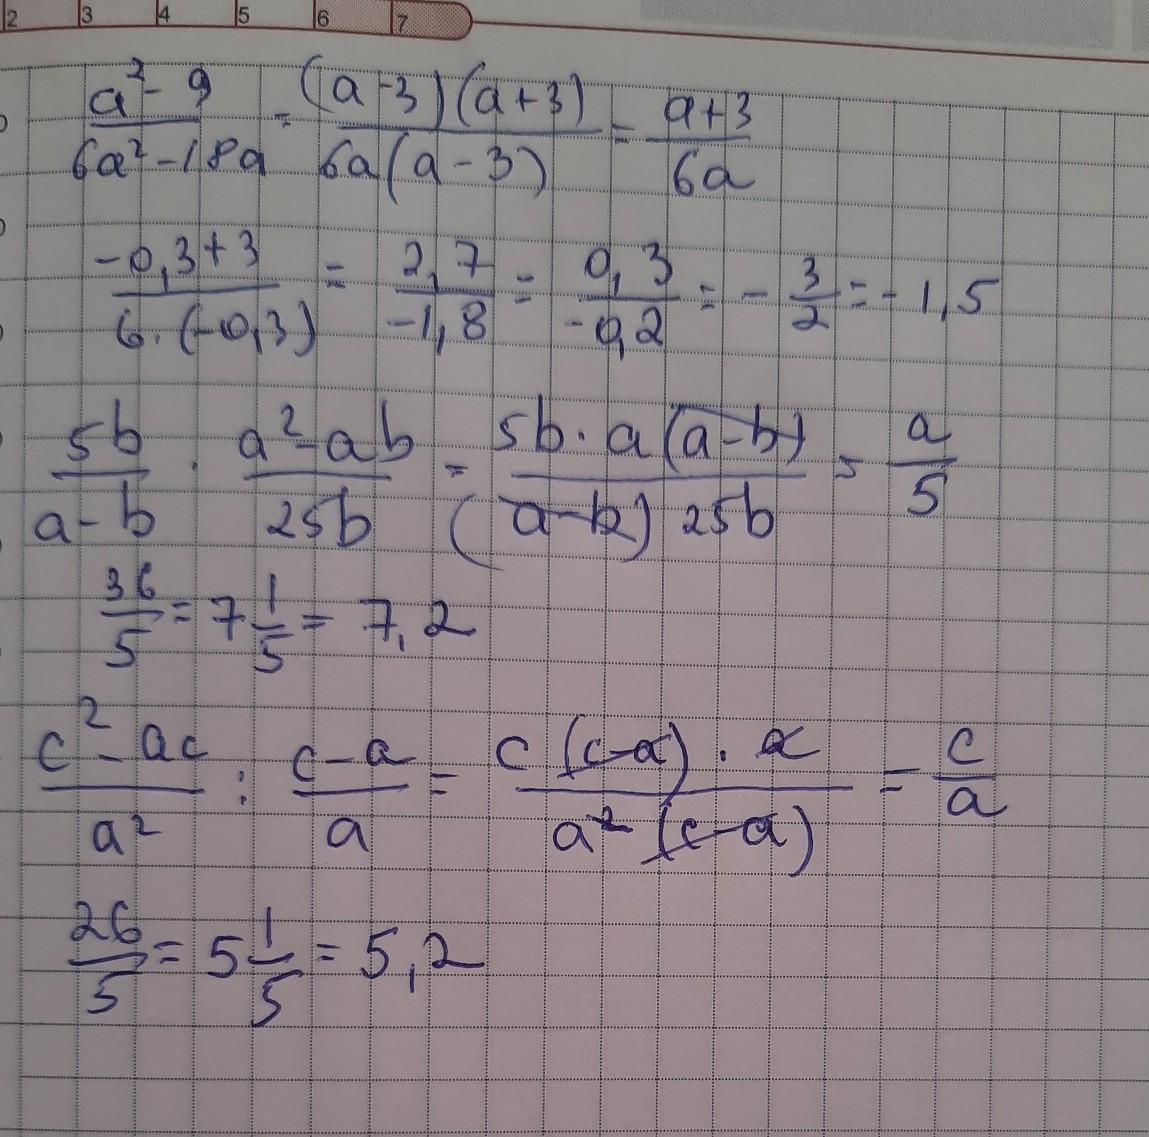 2 3 4 5 6 7
(a² - 9)/(6a² - 18a) = ((a - 3)(a + 3))/(6a(a - 3)) = (a + 3)/(6a)
(-0,3 + 3)/(6 · (-0,3)) = 2,7/(-1,8) = 0,3/(-0,2) = - 3/2 = -1,5
5b/(a - b) · (a² - ab)/(25b) = (5b · a(a - b))/((a - b) 25b) = a/5
36/5 = 7 1/5 = 7,2
(c² - ac)/a² : (c - a)/a = (c(c - a) · a)/(a²(c - a)) = c/a
26/5 = 5 1/5 = 5,2